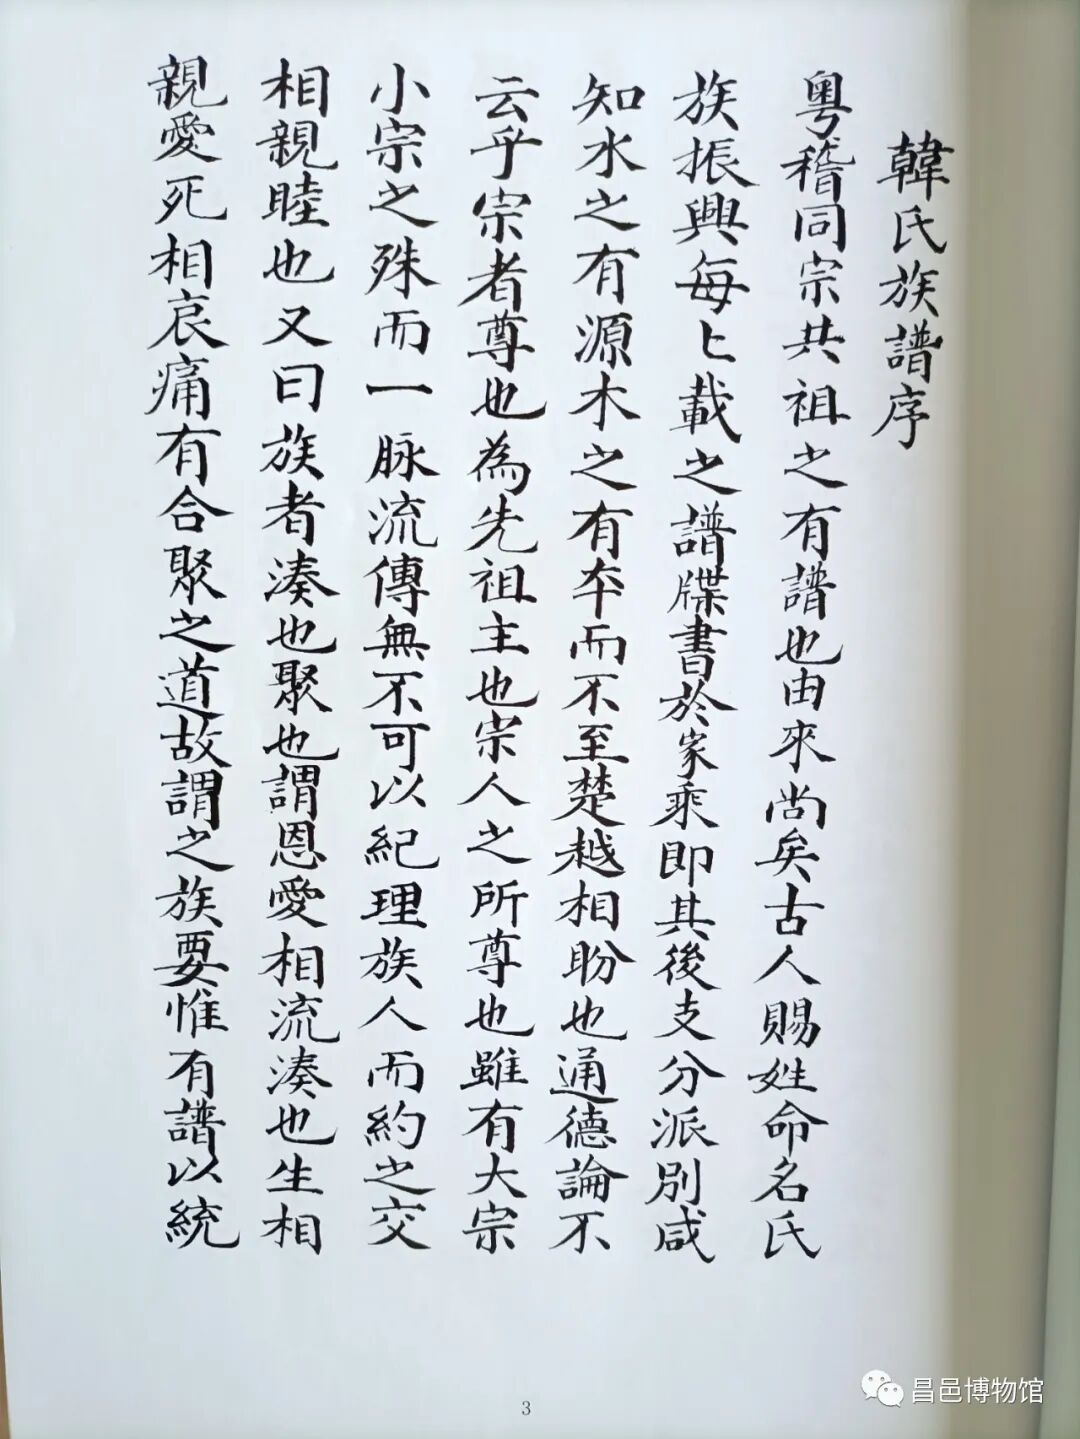 韓氏族譜序
粵稽同宗共祖之有譜也由來尚矣古人賜姓命名氏
族振興每匕載之譜牒書於家乘即其後支分派別咸
知水之有源木之有夲而不至楚越相盼也通德論不
云乎宗者尊也為先祖主也宗人之所尊也雖有大宗
小宗之殊而一脉流傳無不可以紀理族人而約之交
相親睦也又曰族者湊也聚也謂恩愛相流湊也生相
親愛死相哀痛有合聚之道故謂之族要惟有譜以統
3
昌邑博物馆